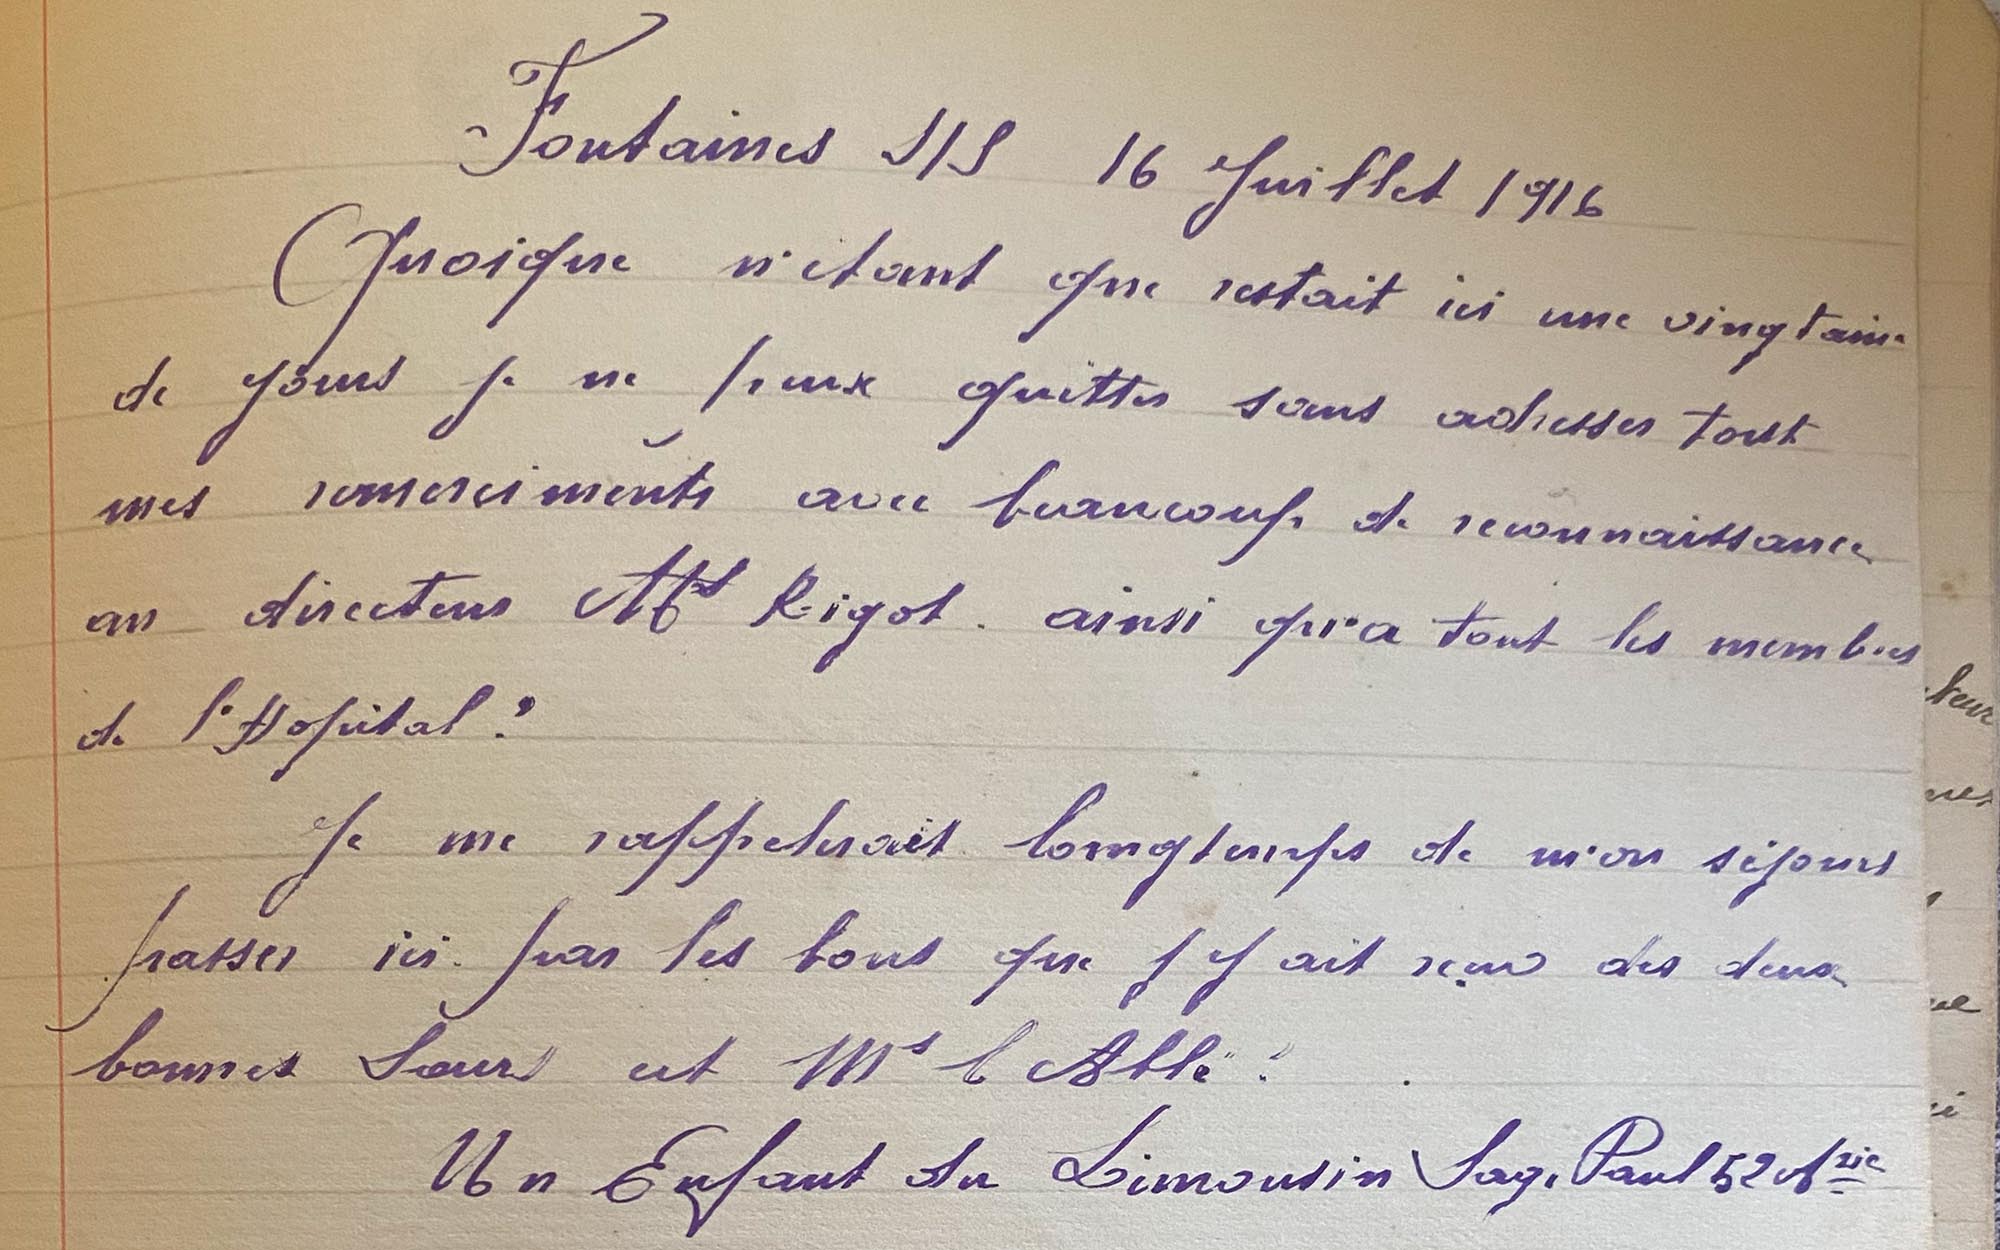 Fontaines S/S 16 Juillet 1916
Quoique n'étant que restait ici une vingtaine
de jours je ne peux quitter sans adresser tout
mes remerciments avec beaucoup de reconnaissance
au directeur Mr Rigot. ainsi qu'a tout les membres
de l'Hopital!
Je me rappelerait longtemps de mon séjours
passer ici par les bons que j'y ait reçu des deux
bonnes Sœurs et Mr l'Abbé!
Un Enfant du Limousin Sage Paul 52 Arie
teur
nes
ue